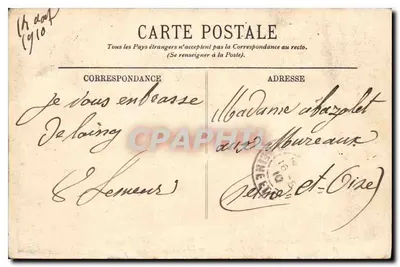 14 août
1910
CARTE POSTALE
Tous les Pays étrangers n'acceptent pas la Correspondance au recto.
(Se renseigner à la Poste).
CORRESPONDANCE
ADRESSE
je vous embrasse
de loing
Madame
aux Mureaux
Seine-et-Oise)
CPARAMA